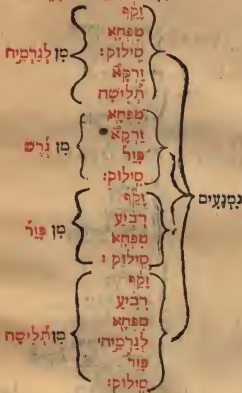 נִמְנָעִים
זָקֵף
טִפְחָא
סִילּוּק:
זַרְקָא
תְּלִישָׁה
מִן לְגַרְמֵיהּ
טִפְחָא
זַרְקָא
פָּזֵר
סִילּוּק:
מִן גֶּרֶשׁ
זָקֵף
רְבִיעַ
טִפְחָא
סִילּוּק :
מִן פָּזֵר
זָקֵף
רְבִיעַ
טִפְחָא
לְגַרְמֵיהּ
פָּזֵר
סִילּוּק:
מִן תְּלִישָׁה